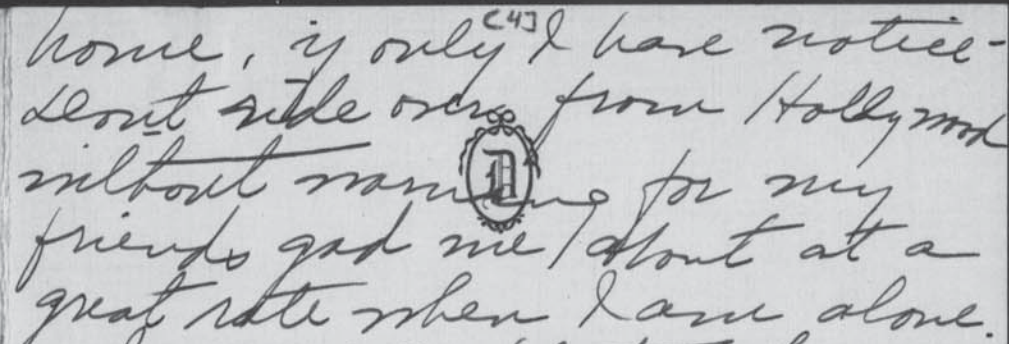 [4]
home, if only I have notice -
Don't ride over from Hollywood
without warning for my
friends gad me about at a
great rate when I am alone.
D